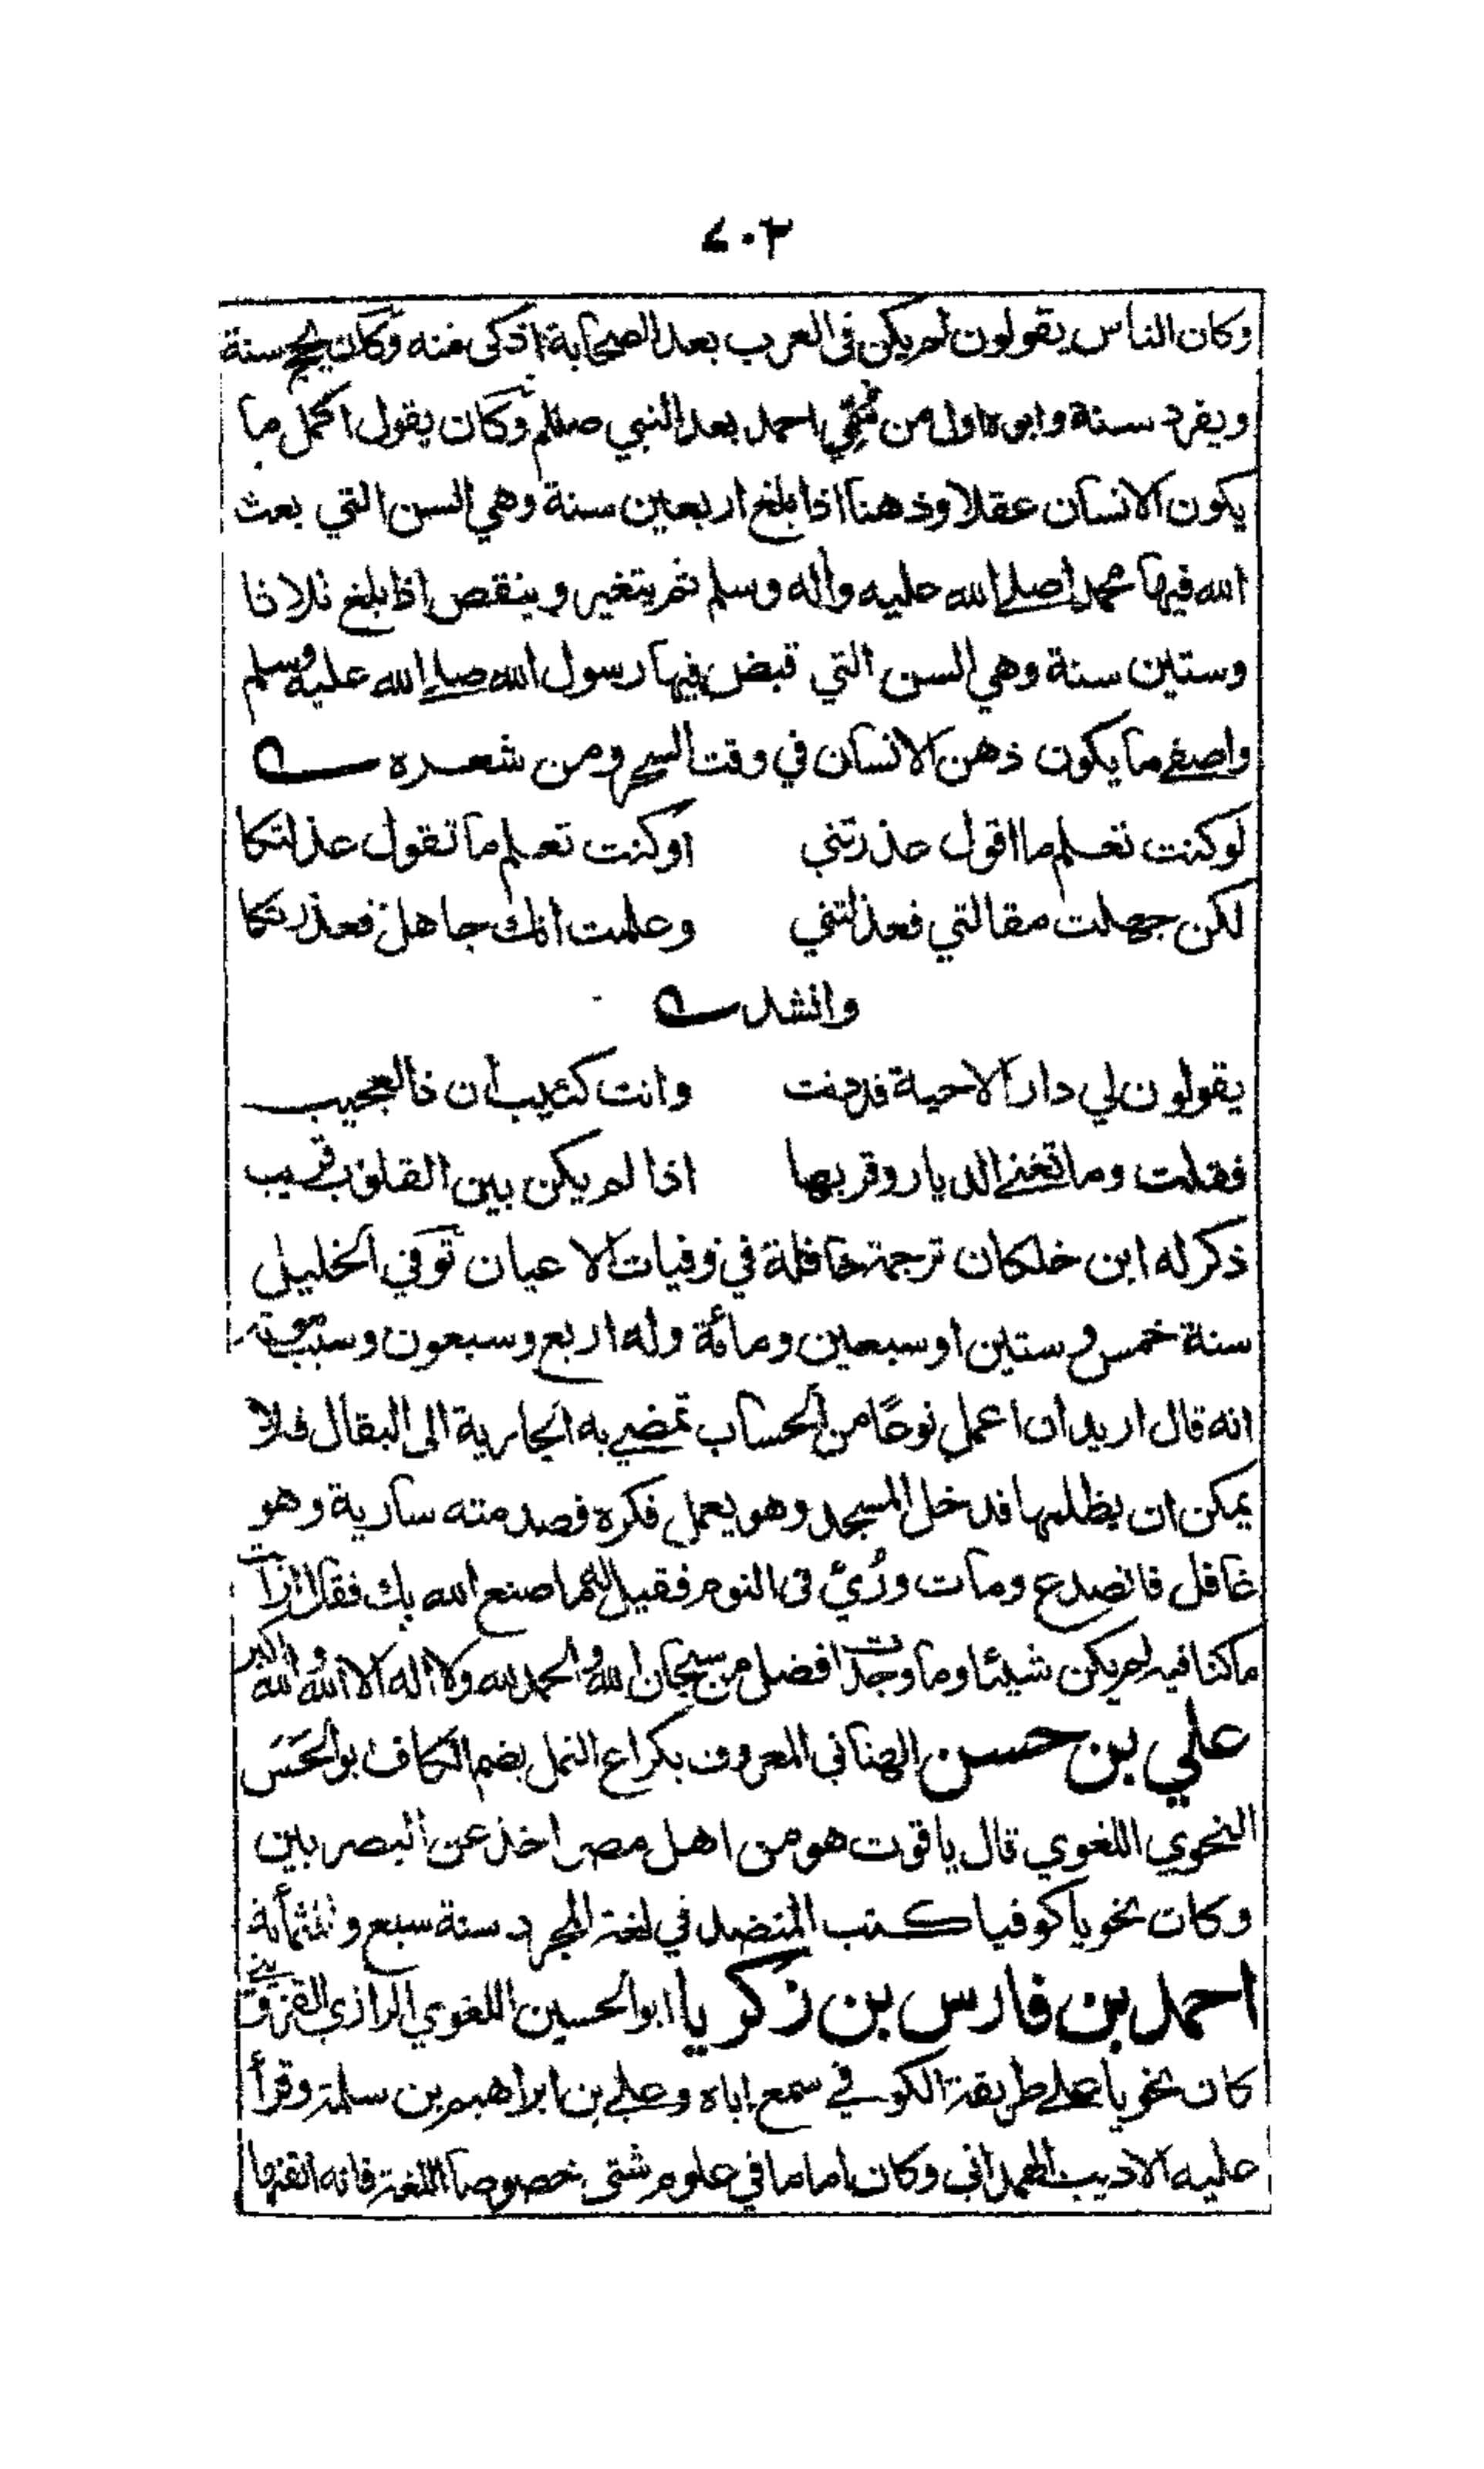 ٤٠٣
وكان الناس يقولون لم يكن فى العرب بعد الصحابة اذكى منه وكان يحج سنة
ويفرد سنة وابوه اول من سُمّي احمد بعد النبي صللم وكان يقول اكمل ما
يكون الانسان عقلا وذهنا اذا بلغ اربعين سنة وهي السن التي بعث
الله فيها محمدا صلى الله عليه وأله وسلم ثم يتغير وينقص اذا بلغ ثلاثا
وستين سنة وهي السن التي قبض فيها رسول الله صلى الله عليه وسلم
واصفى ما يكون ذهن الانسان في وقت السحر ومن شعره
لو كنت تعلم ما اقول عذرتني اوكنت تعلم ما تقول عذلتكا
لكن جهلت مقالتي فعذلتني وعلمت انك جاهل فعذرتكا
وانشد
يقولون لي دار الاحبة قد دنت وانت كئيب ان ذا لعجيب
فقلت وما تغني الديار وقربها اذا لم يكن بين القلوب قريب
ذكر له ابن خلكان ترجمة حافلة في وفيات الاعيان توفي الخليل
سنة خمس وستين او سبعين ومائة وله اربع وسبعون وسبب موته
انه قال اريد ان اعمل نوعًا من الحساب تمضي به الجارية الى البقال فلا
يمكن ان يظلمها فدخل المسجد وهو يعمل فكره فصدمته سارية وهو
غافل فانصدع ومات ورُئيَ في النوم فقيل له ما صنع الله بك فقال ارأيت
ما كنا فيه لم يكن شيئا وما وجدت افضل من سبحان الله والحمد لله ولا اله الا الله والله اكبر
علي بن حسن الهنائي المعروف بكراع النمل بضم الكاف ابوالحَسَن
النحوي اللغوي قال ياقوت هو من اهل مصر اخذ عن البصريين
وكان نحويا كوفيا كتب المنضد في لغة المجرد سنة سبع وثلثمأئة
احمد بن فارس بن زكريا ابو الحسين اللغوي الرازي القزويني
كان نحويا على طريقة الكوفي سمع اباه وعلي بن ابراهيم بن سلمة وقرأ
عليه الاديب الهمداني وكان اماما في علوم شتى خصوصا اللغة فانه اتقنها